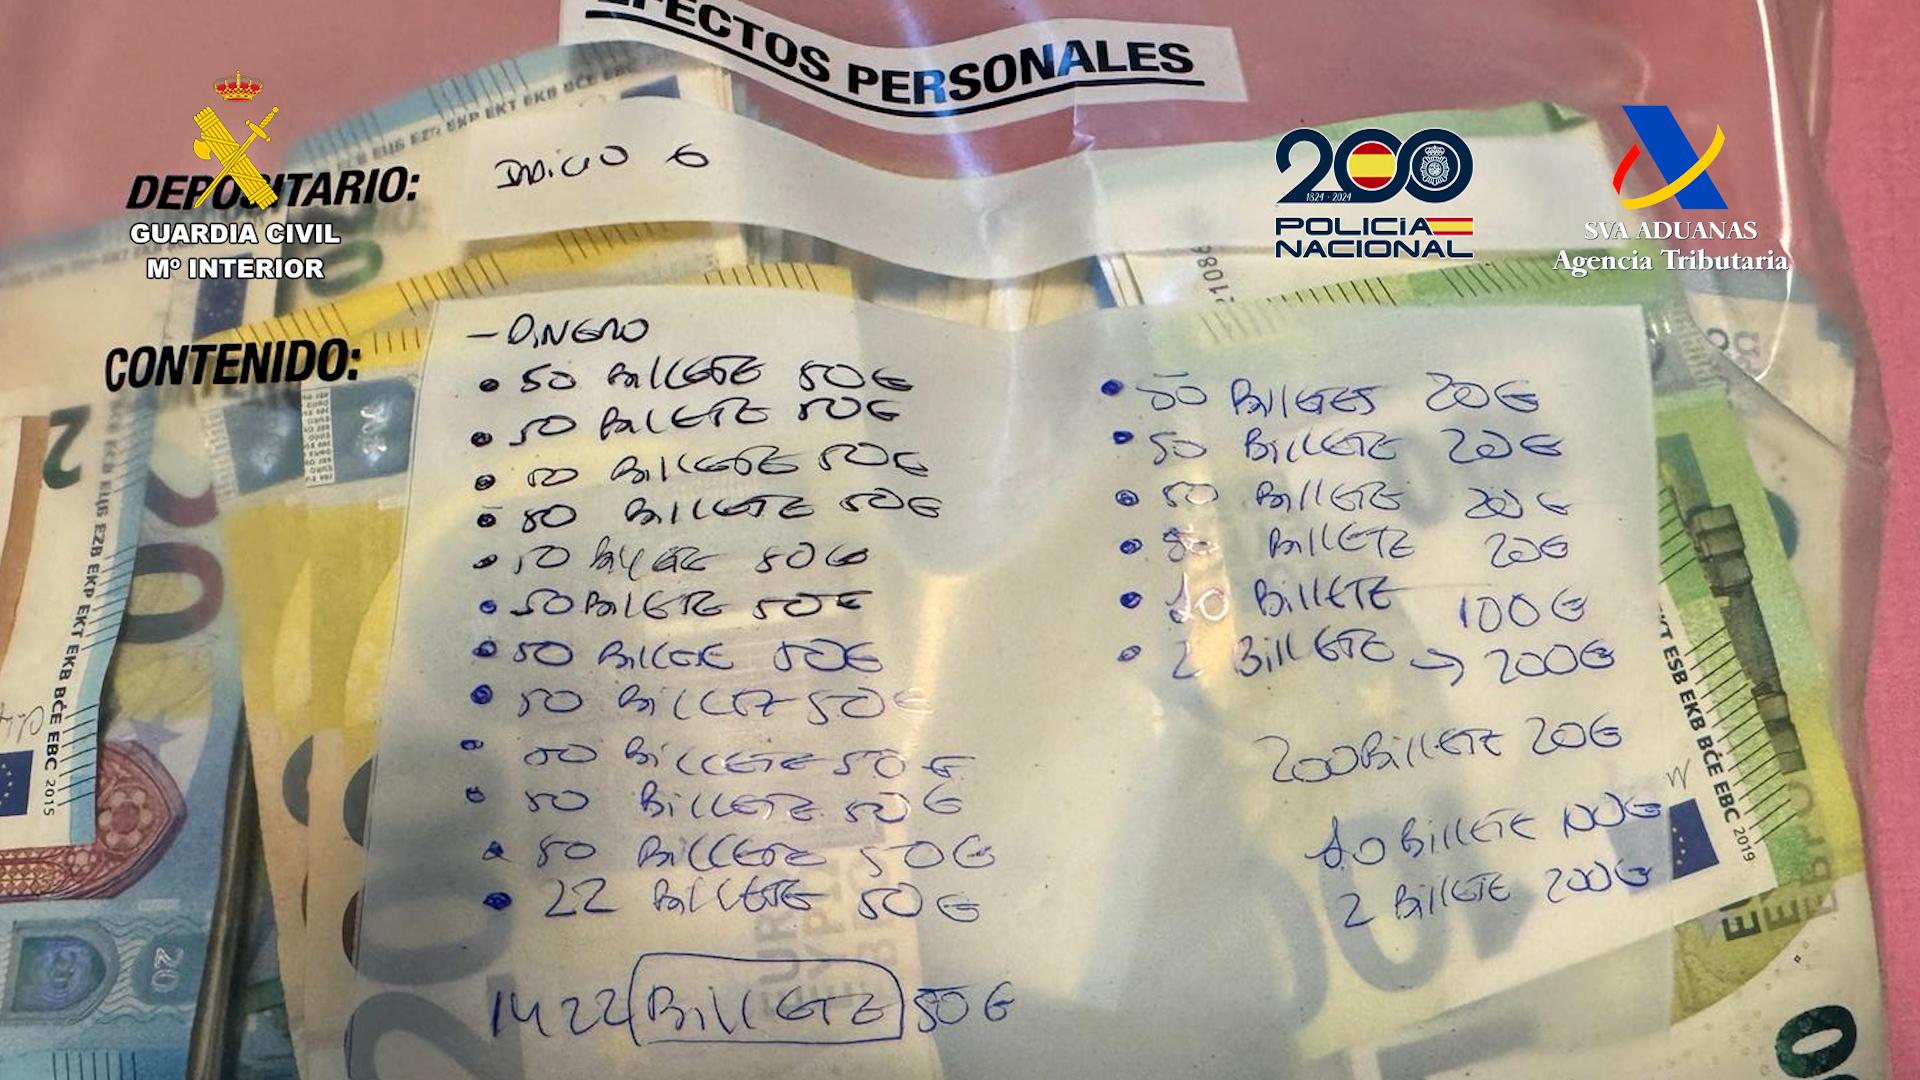 EFECTOS PERSONALES
DEPOSITARIO:
INDICIO 6
GUARDIA CIVIL
Mº INTERIOR
200
1824 - 2024
POLICÍA
NACIONAL
SVA ADUANAS
Agencia Tributaria
CONTENIDO:
- DINERO
• 50 BILLETE 50€
• 50 BILLETE 50€
• 50 BILLETE 50€
• 50 BILLETE 50€
• 50 BILLETE 50€
• 50 BILLETE 50€
• 50 BILLETE 50€
• 50 BILLETE 50€
• 50 BILLETE 50€
• 50 BILLETE 50€
• 50 BILLETE 50€
• 22 BILLETE 50€
1422 BILLETE 50€
• 50 BILLETES 20€
• 50 BILLETE 20€
• 50 BILLETE 20€
• 50 BILLETE 20€
• 10 BILLETE 100€
• 2 BILLETE → 200€
200 BILLETE 20€
10 BILLETE 100€
2 BILLETE 200€
EZB EKP EKT EKB BČE EBC 2015
EKT ESB EKB BČE EBC 2019
20